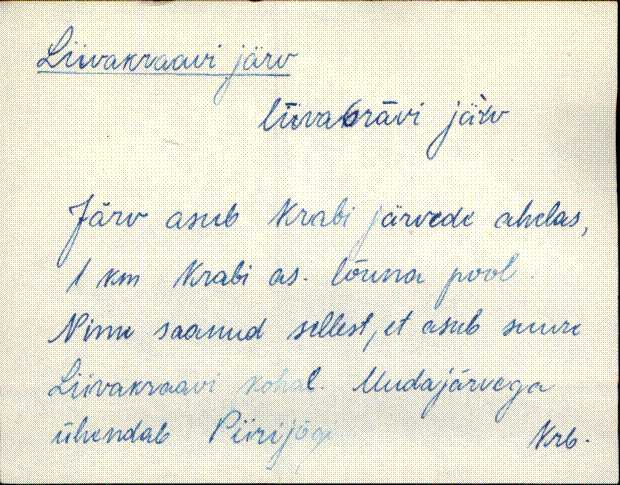 Liivakraavi järv
liivakrāvi järv
Järv asub Krabi järvede ahelas,
1 km Krabi as. lõuna pool.
Nime saanud sellest, et asub suure
Liivakraavi kohal. Mudajärvega
ühendab Piirijõgi
Krb.